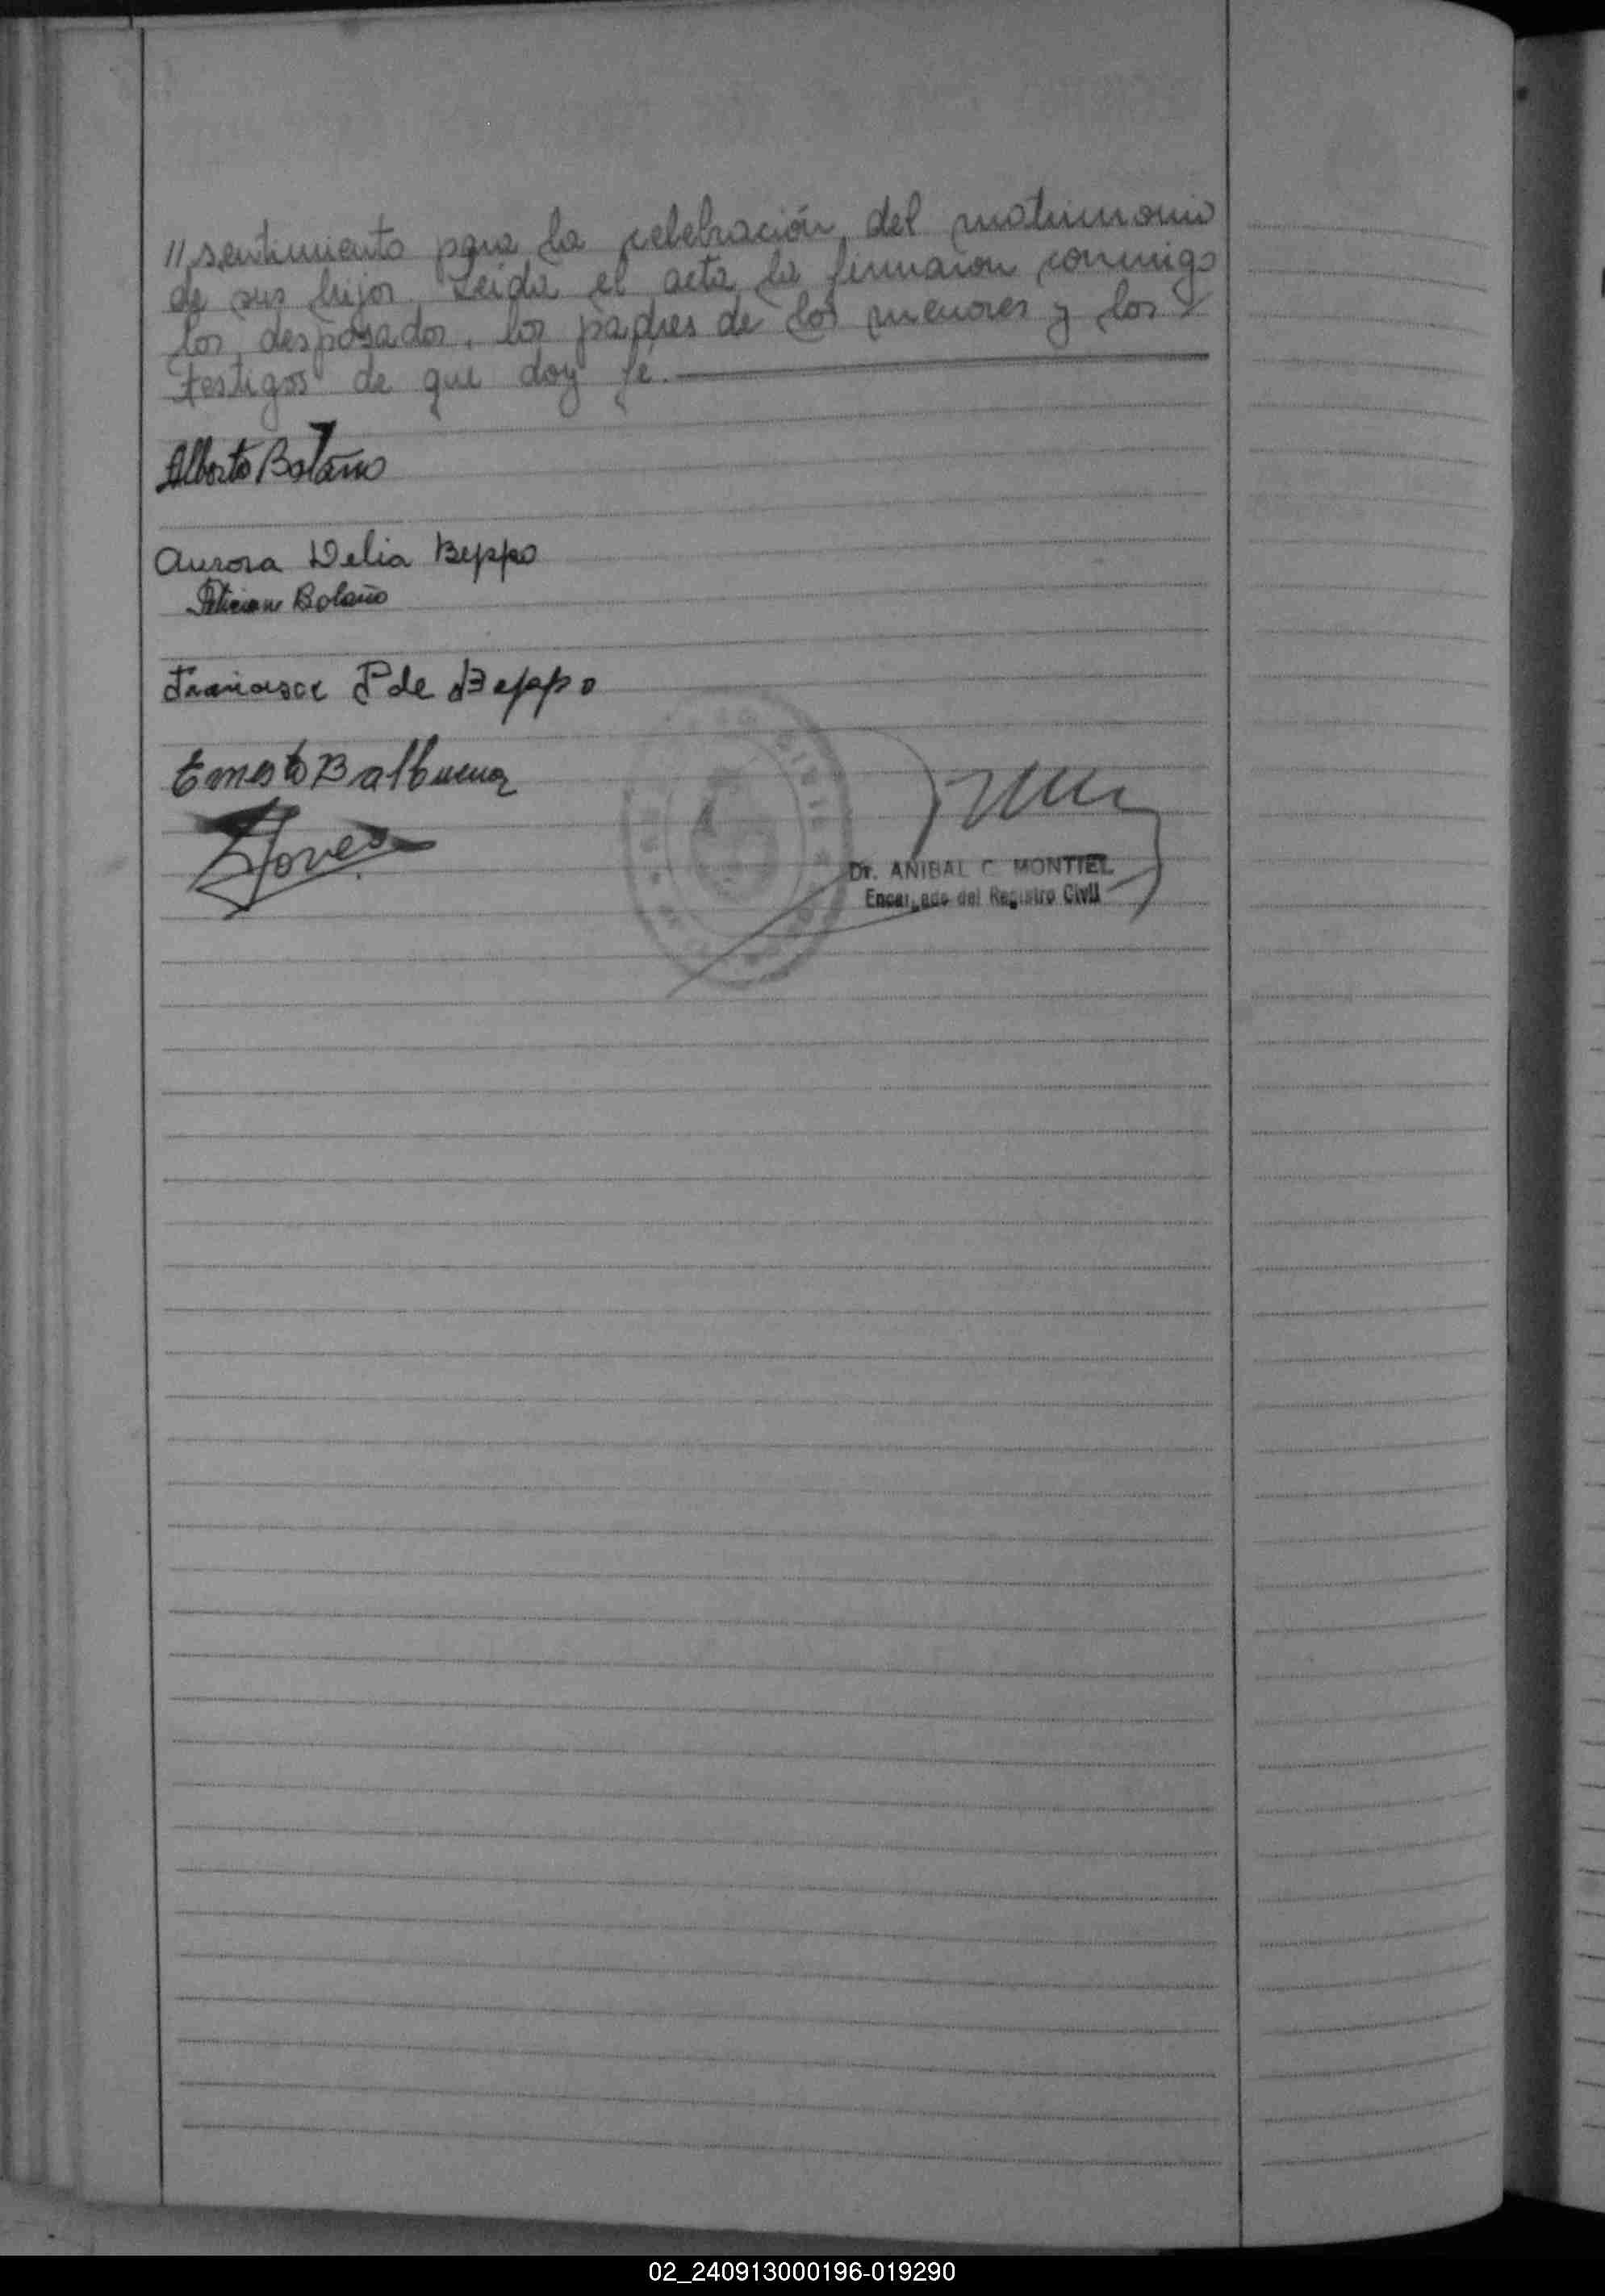 // sentimiento para la celebración del matrimonio
de sus hijos. Leida el acta la firmaron conmigo
los desposados, los padres de los menores y los
testigos de que doy fé.
Alberto Bolaño
Aurora Delia Beppo
Bolaño
Francisca P de Beppo
Ernesto Balbuena
Dr. ANIBAL C. MONTIEL
Encargado del Registro Civil
02_240913000196-019290